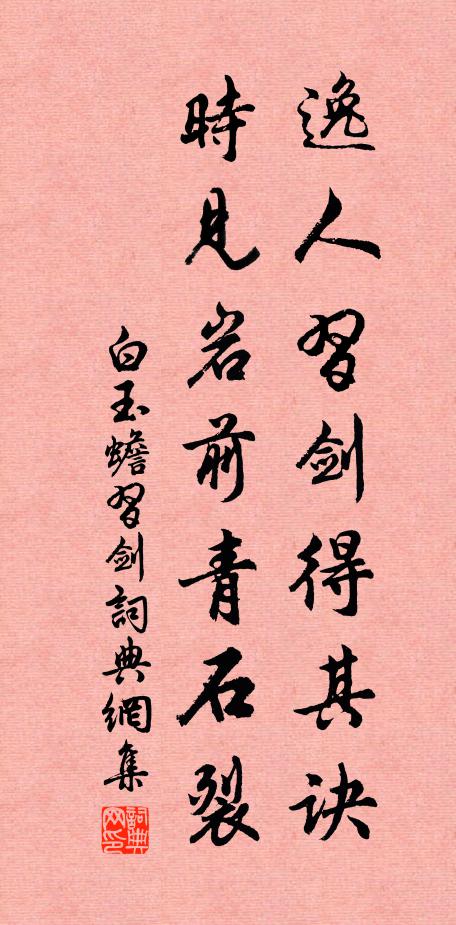 逸人習劍得其訣
時見岩前青石裂
白玉蟾習劍詞典網集
詞典網印